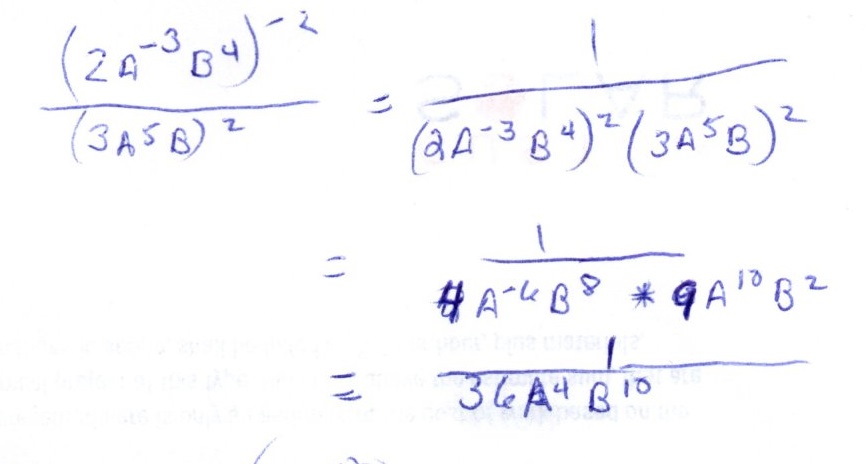 (2A⁻³B⁴)⁻² / (3A⁵B)² = 1 / (2A⁻³B⁴)²(3A⁵B)²
= 1 / 4A⁻⁶B⁸ * 9A¹⁰B²
= 1 / 36A⁴B¹⁰